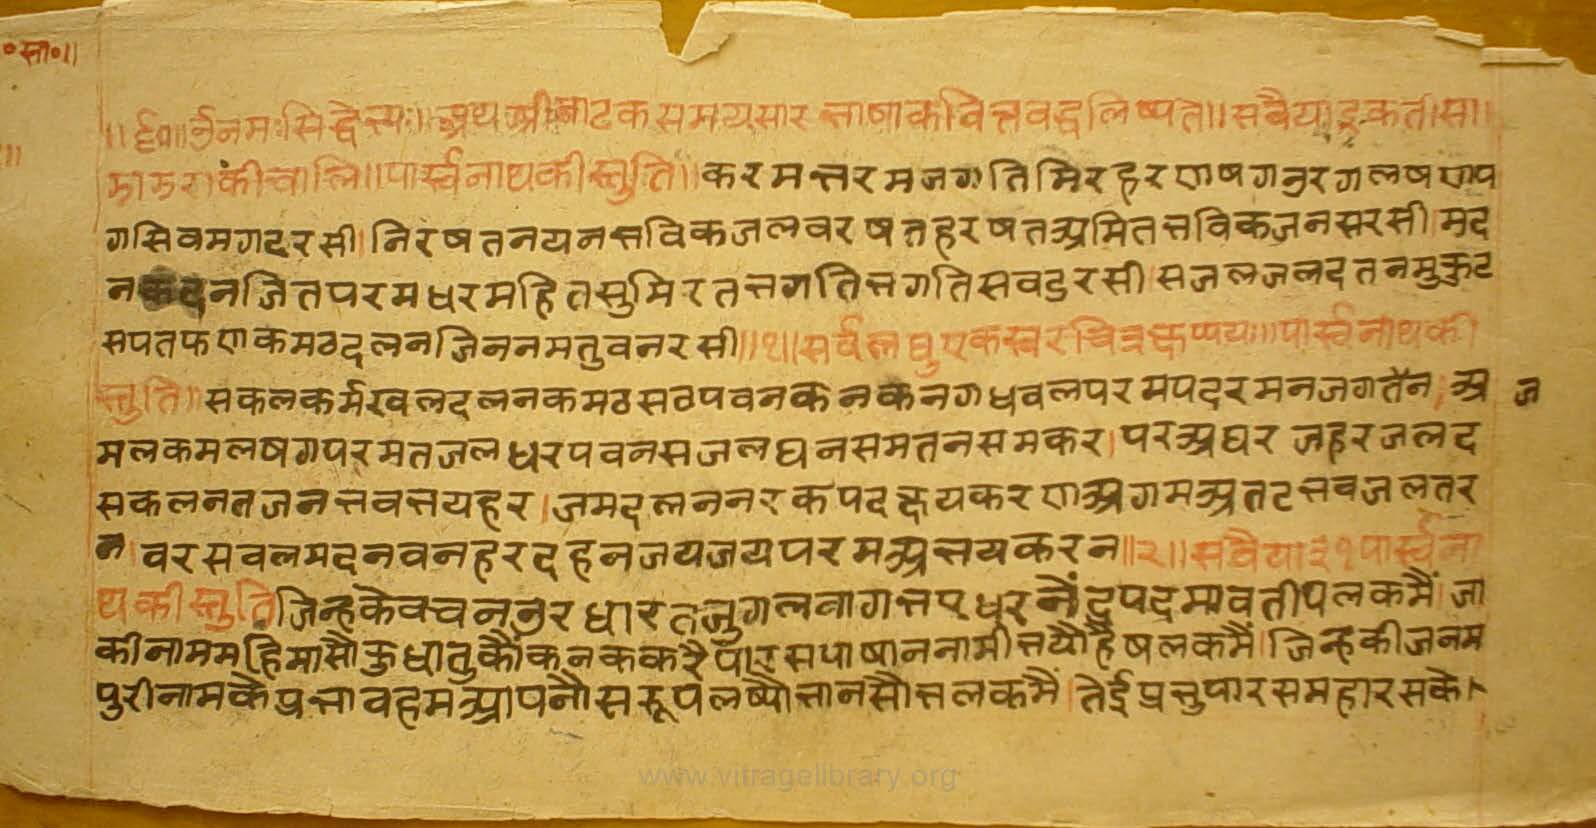 ॰सा॰॥
॥ र्द०॥ र्उनमःसिद्धेभ्यः॥ अथ श्रीनाटकसमयसार भाषाकवित्तबद्धलिष्यते॥ सवैयाइकतीसा॥
झाझराकीचालि॥ पार्स्वनाथकीस्तुति॥ करमभरमजगतिमिरहरणषगउरगलषणप
गसिवमगदरसी। निरषतनयनभविकजलवरषतहरषतअमितभविकजनसरसी। मद
नकदनजितपरमधरमहितसुमिरतभगतिभगतिसवडरसी। सजलजलदतनमुकुट
सपतफणकमठदलनजिननमतुवनरसी॥१॥ सर्वलघुएकस्वरचित्रछप्पय॥ पार्स्वनाथकी
स्तुति॥ सकलकर्मखलदलनकमठसठपवनकनकनगधवलपरमपदरमनजगतैन। अ ज
मलकमलषगपरमतजलधरपवनसजलघनसमतनसमकर। परअघरजहरजलद
सकलनतजनभवभयहर। जमदलननरकपदछयकरणअगमअतटभवजलतर
न। वरसवलमदनवनहरदहनजयजयपरमअभयकरन॥२॥ सवैया३१ पार्स्वना
थकीस्तुति जिन्हकैवचनउरधारतजुगलनागभएधरनैंद्रपदमावतीपलकमैं। जा
कीनाममहिमासौकुधातुकौंकनककरैपारसपाषाननामीभयौहैषलकमैं। जिन्हकीजनम
पुरीनामकैप्रभावहमआपनौसरूपलष्यौभानसौभलकमैं। तेईप्रभुपारसमहारसके
www.vitragelibrary.org